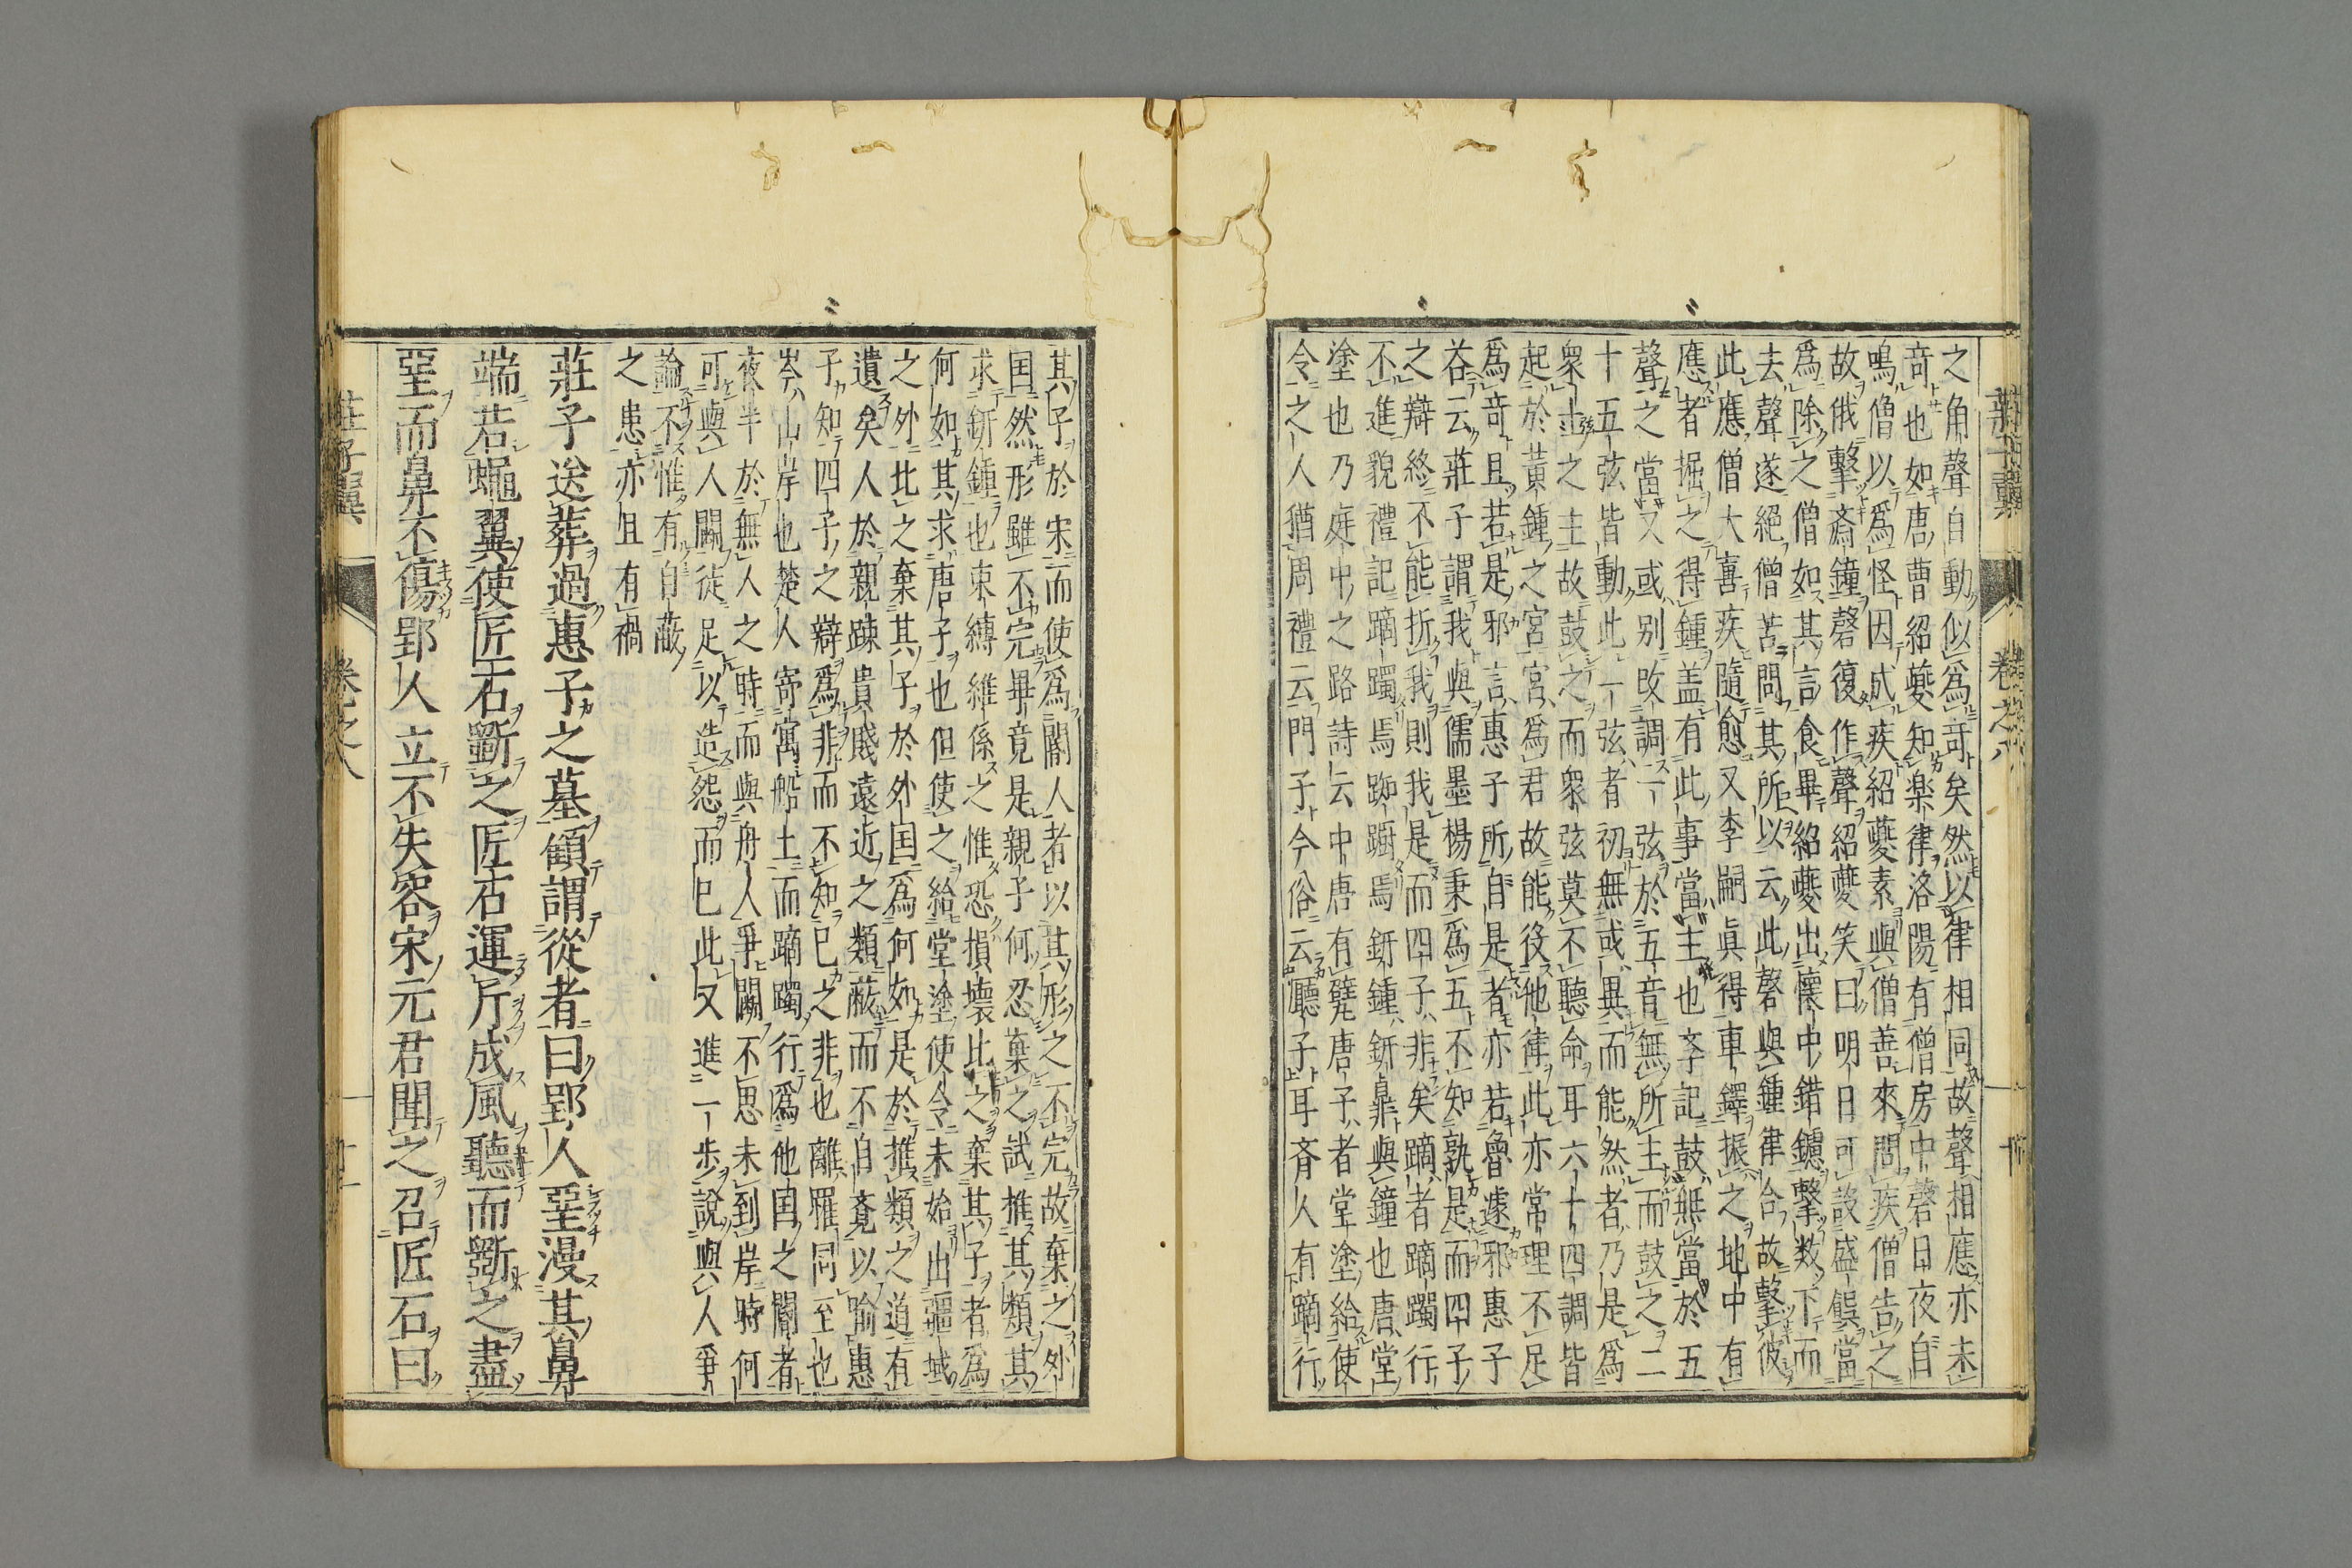 莊子翼 卷之八
之角聲自動似爲竒矣然以律相同故聲相應亦未
竒也如唐曹紹夔知楽律洛陽有僧房中磬日夜自
鳴僧以爲怪因成疾紹夔素與僧善來問疾僧告之
故俄擊齋鐘磬復作聲紹夔笑曰明日可設盛饌當
爲除之僧如其言食畢紹夔出懷中錯鑢擊数下而
去聲遂絕僧苦問其所以云此磬與鍾律合故擊彼
此應僧大喜疾隨愈又李嗣眞得車鐸振之地中有
應者掘之得鍾盖有此事當主也李記鼓無當於五
聲之當又或別改調一弦於五音無所主而鼓之二
十五弦皆動此一弦者初無或異而能然者乃是爲
衆主之主故鼓之而衆弦莫不聽命耳六十四調皆
起於黃鍾之宮宮爲君故能役他律此亦常理不足
爲竒且若是邪言惠子所自是者亦若魯遽邪惠子
荅云莊子謂我與儒墨楊秉爲五不知孰是而四子
之辯終不能折我則我是而四子非矣蹢者蹢躅行
不進貌禮記蹢躅焉踟蹰焉鈃鍾鈃鼎與鐘也唐堂
塗也乃庭中之路詩云中唐有甓唐子者堂塗給使
令之人猶周禮云門子今俗云廳子耳齊人有蹢行
其子於宋而使爲閽人者以其形之不完故棄之外
国然形雖不完畢竟是親子何忍棄之試推其類其
求鈃鍾也束縛維係之惟恐損壊比之棄其子者爲
何如其求唐子也但使之給堂塗使令未始出疆域
之外比之棄其子於外国爲何如是於推類之道有
遺矣人於親踈貴賎遠近之類蔽而不自覚以喻惠
子知四子之辯爲非而不知已之非也離罹同至也
岑山岸也楚人寄寓船上而蹢躅行爲他国之閽者
夜半於無人之時而與舟人爭闘不思未到岸時何
可與人闘徒足以造怨而已此又進一步說與人爭
論不惟有自蔽
之患亦且有禍
莊子送葬過惠子之墓顧謂從者曰郢人堊漫其鼻
端若蠅翼使匠石斲之匠石運斤成風聽而斲之盡
堊而鼻不傷郢人立不失容宋元君聞之召匠石曰
莊子翼 卷之八